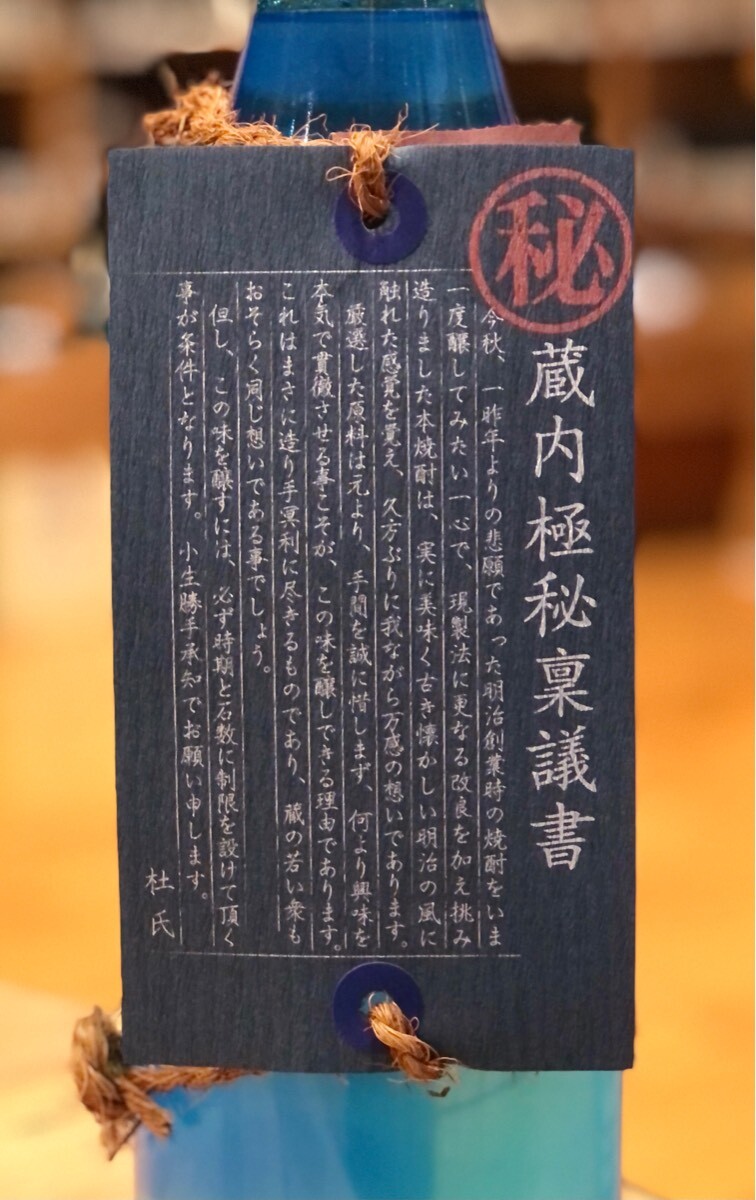 秘
蔵内極秘稟議書
今秋、一昨年よりの悲願であった明治創業時の焼酎をいま
一度醸してみたい一心で、現製法に更なる改良を加え挑み
造りました本焼酎は、実に美味く古き懐かしい明治の風に
触れた感覚を覚え、久方ぶりに我ながら万感の想いであります。
厳選した原料は元より、手間を誠に惜しまず、何より興味を
本気で貫徹させる事こそが、この味を醸しできる理由であります。
これはまさに造り手冥利に尽きるものであり、蔵の若い衆も
おそらく同じ想いである事でしょう。
但し、この味を醸すには、必ず時期と石数に制限を設けて頂く
事が条件となります。小生勝手承知でお願い申します。
杜氏